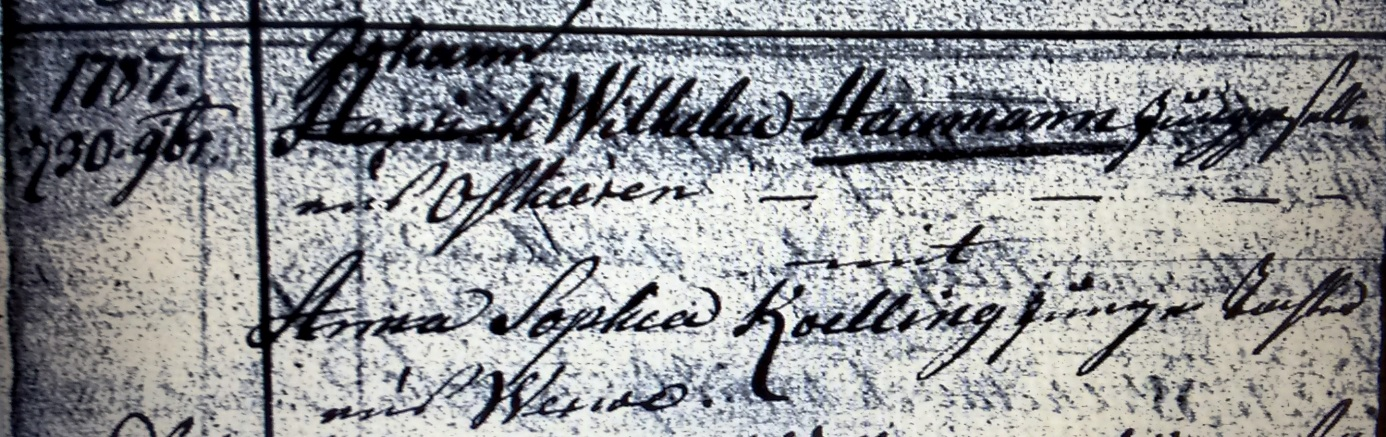 1787.
d 30. 9br.
Johann
Henrich Wilhelm Haumann Junggeselle
aus Ostkeeren
mit
Anna Sophia Koelling junge Tochter
aus Werwe.